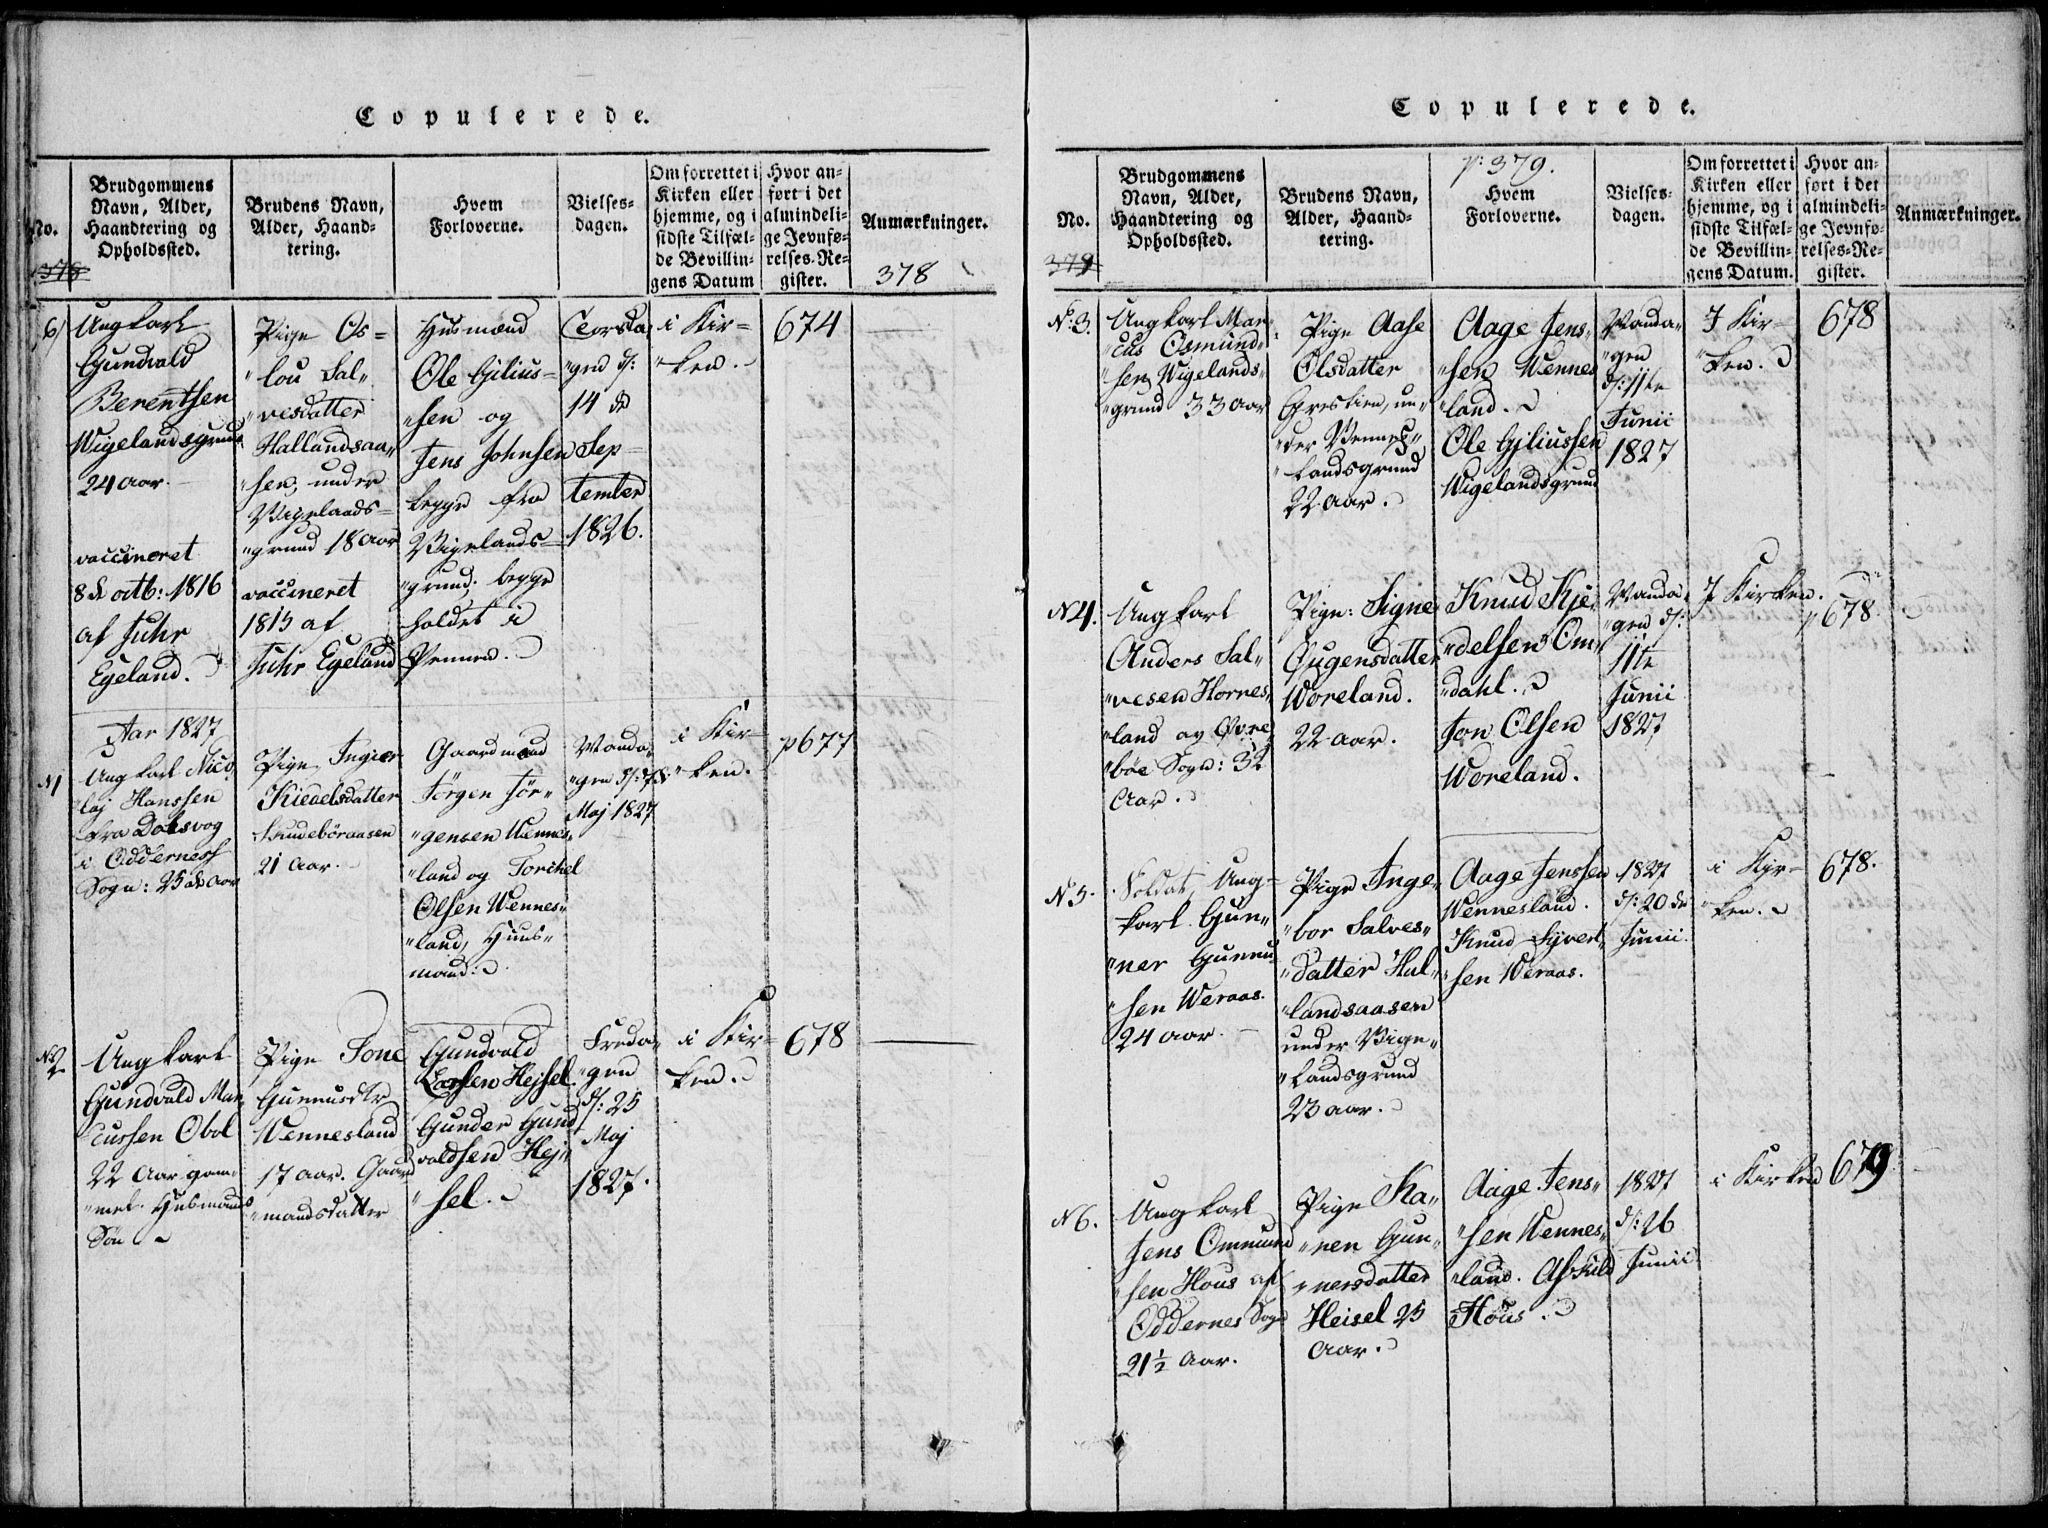 Copulerede.
No.
Brudgommens
Navn, Alder,
Haandtering og
Opholdssted.
Brudens Navn,
Alder, Haand-
tering.
Hvem
Forloverne.
Vielses-
dagen.
Om forrettet i
Kirken eller
hjemme, og i
sidste Tilfæl-
de Bevillin-
gens Datum
Hvor an-
ført i det
almindeli-
ge Jevnfø-
relses-Re-
gister.
Anmærkninger.
378
378
6)
Ungkarl
Gundvald
Berentsen
Wigelandsgrund
24 aar.
vaccineret
8de octb: 1816
af Juhr
Egeland.
Pige Os-
lou Sal-
vesdatter
Hallandsaa-
sen, under
Vigelands-
grund 18 aar
vaccineret
1815 af
Juhr Egeland
Husmænd
Ole Gilius-
sen og
Jens Johnsen
begge fra
Vigelands-
grund. begge
holdet i
Torsda-
gen d:
14 de
Sep-
tember
1826.
i Kir-
ken.
674
Aar 1827
N1
Ungkarl Nico-
laj Hanssen
fra Dolsvog
i Oddernes
Sogn: 25 de aar
Pige Ingier
Kieaelsdatter
Skudeböraasen
21 Aar.
Gaardmand
Jörgen Jör-
gensen Wennes-
land og Torchel
Olsen Wennes-
land, Huus-
mand.
Manda-
gen d: 7de
Maj 1827
i Kir-
ken.
p677
No2
Ungkarl
Gundvald Mar-
cussen Obol
22 Aar gam-
mel. Husmands
Sön
Pige Tone
Gunnusdtr
Wennesland
17 aar. Gaard
mandsdatter
Gundvald
Larsen Hejsel.
Gunder Gund
valdsen Hej-
sel.
Freda-
gen
d: 25
Maj
1827.
i Kir-
ken.
678
Copulerede.
No.
Brudgommens
Navn, Alder,
Haandtering og
Opholdssted.
Brudens Navn,
Alder, Haand-
tering.
p: 379.
Hvem
Forloverne.
Vielses-
dagen.
Om forrettet i
Kirken eller
hjemme, og i
sidste Tilfæl-
de Bevillin-
gens Datum.
Hvor an-
ført i det
almindeli-
ge Jevnfø-
relses-Re-
gister.
Anmærkninger.
379
No: 3.
Ungkarl Mar-
cus Osmund-
sen Wigelands-
grund 33 aar
Pige Aase
Olsdatter
Grestien, un-
der Vennes-
landsgrund
22 aar.
Aage Jens-
sen Wennes
land.
Ole Giliussen
Wigelandsgrund
Manda-
gen
d: 11te
Junii
1827
I Kir-
ken.
678
N4.
Ungkarl
Anders Sal-
vesen Hornes-
land af Øvre
böe Sogn: 32
Aar.
Pige: Signe
Ougensdatter
Woreland.
22 aar.
Knud Kje-
delsen Om-
dahl.
Jon Olsen
Woreland.
Manda-
gen d:
11te
Junii
1827
I Kirken.
p678.
N5.
Soldat, Ung-
karl Gun-
ner Gunnu-
sen Weraas.
24 aar.
Pige Inge-
bor Salves-
datter Hal-
landsaasen
under Vige-
landsgrund
23 aar.
Aage Jenssen
Wennesland.
Knud Syvert-
sen Weraas.
1827
d: 20 de
Junii.
i Kir-
ken.
678.
N6.
Ungkarl
Jens Ommund
sen Hous af
Oddernes Sogn
21½ Aar.
Pige Ka-
ren Gun-
nersdatter
Heisel 25
aar.
Aage Jens-
sen Wennes-
land. Askild
Hous.
1827
d: 26
Junii
i Kirken
679